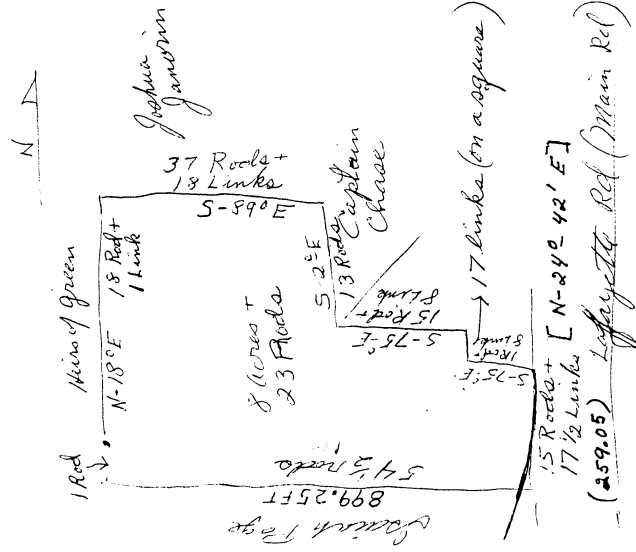 N
Joshua
Janvrin
37 Rods +
18 Links
S-89°E
Heirs of Green
N-18°E
18 Rod +
1 Link
1 Rod
8 Acres +
23 Rods
S-2°E
13 Rods
Captain
Chase
15 Rod +
8 Link
S-75-E
17 links (on a square)
1 Rod +
8 Links
S-75°E
54 1/2 rods
899.25 FT
Isaiah Page
15 Rods +
17 1/2 Links [N-24°-42' E]
(259.05) Lafayette Rd (Main Rd)